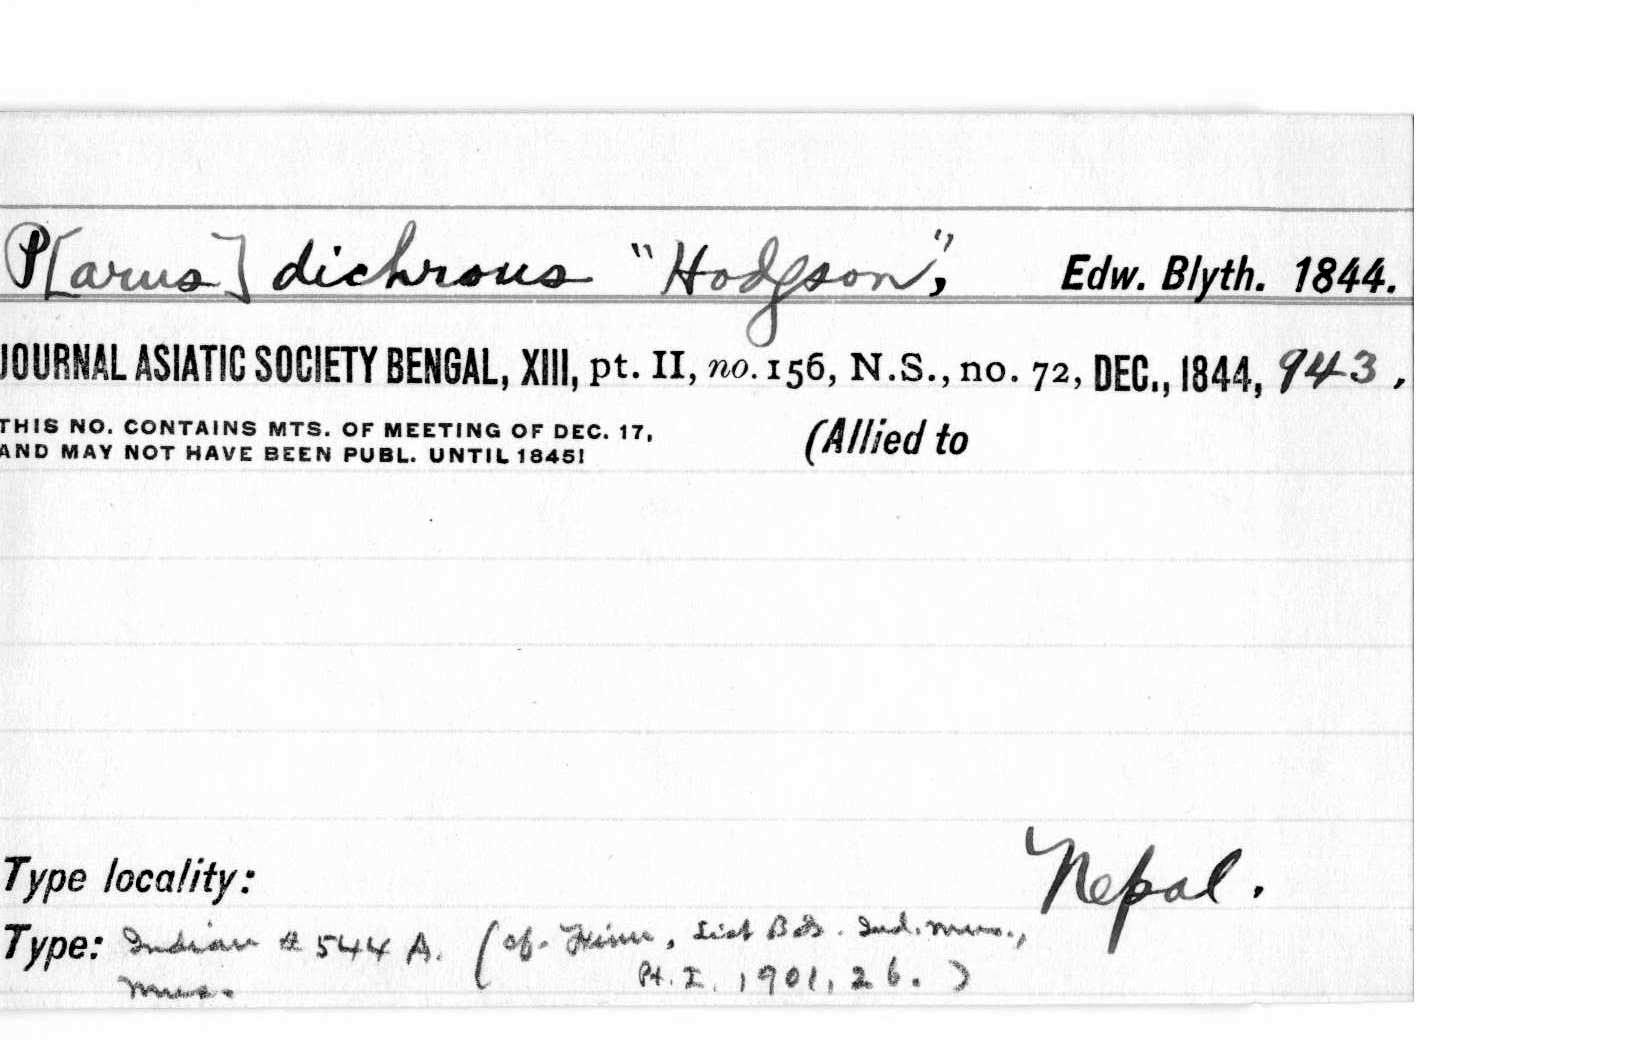 P[arus] dichrous "Hodgson", Edw. Blyth. 1844.
JOURNAL ASIATIC SOCIETY BENGAL, XIII, pt. II, no. 156, N.S., no. 72, DEC., 1844, 943.
THIS NO. CONTAINS MTS. OF MEETING OF DEC. 17, (Allied to
AND MAY NOT HAVE BEEN PUBL. UNTIL 1845!
Type locality: Nepal.
Type: Indian # 544 A. (cf. Finn, List Bds. Ind. Mus.,
Mus. Pt. I, 1901, 26.)